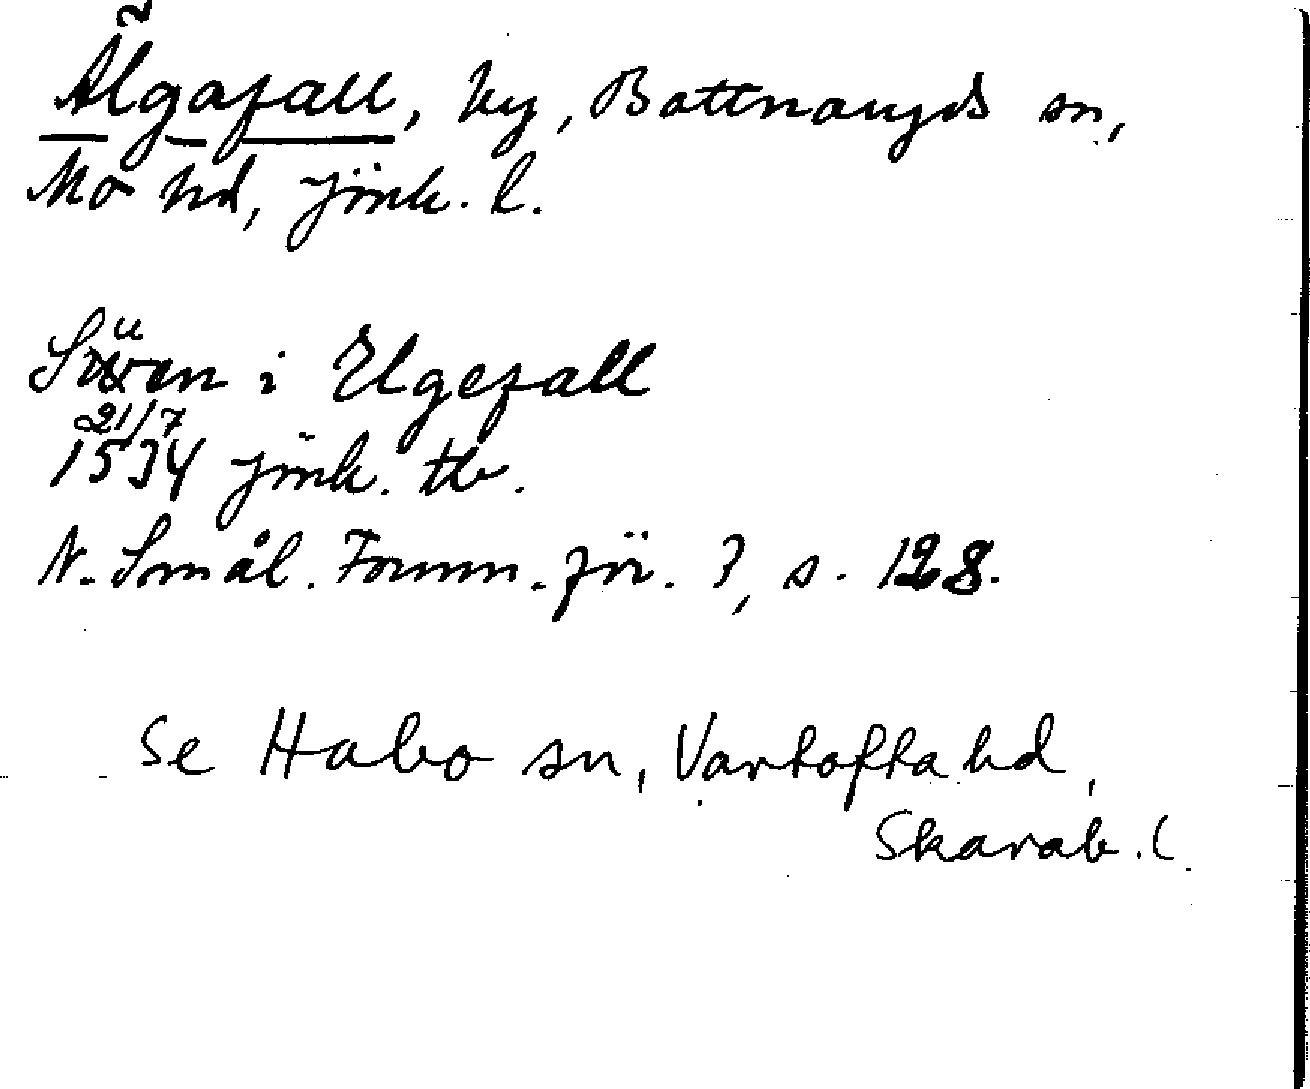 Älgafall, by, Bottnaryds sn,
Mo hd, Jönk. l.
Swen i Elgefall
21/7
1534 Jönk. tb.
N. Smål. Fornm. för. 7, s. 128.
Se Habo sn, Vartofta hd,
Skarab. l.